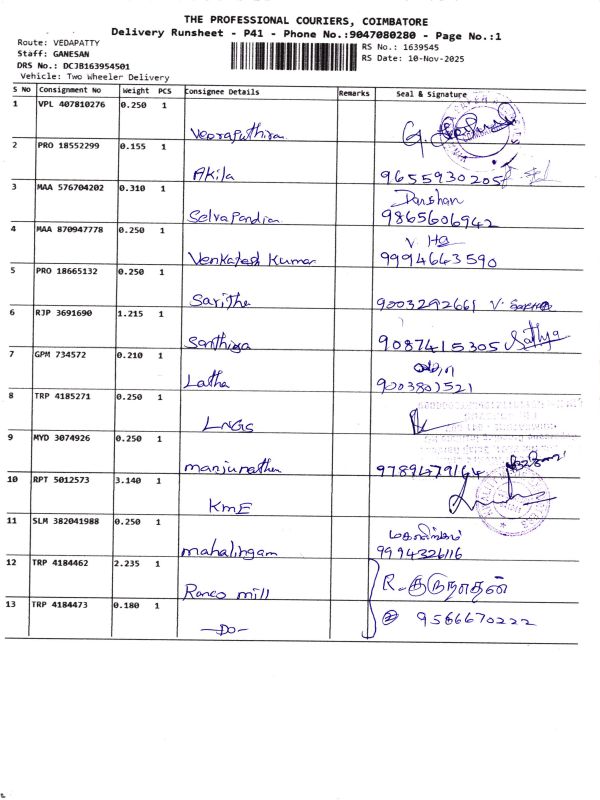 THE PROFESSIONAL COURIERS, COIMBATORE
Delivery Runsheet - P41 - Phone No.:9047080280 - Page No.:1
Route: VEDAPATTY
Staff: GANESAN
DRS No.: DCJB163954501
Vehicle: Two Wheeler Delivery
RS No.: 1639545
RS Date: 10-Nov-2025
S No Consignment No Weight PCS Consignee Details Remarks Seal & Signature
1 VPL 407810276 0.250 1
Veeraputhiran
2 PRO 18552299 0.155 1
Akila 9655930205
3 MAA 576704202 0.310 1 Darshan
Selvapandian 9865606942
4 MAA 870947778 0.250 1 V. Ha
Venkatesh Kumar 9994643590
5 PRO 18665132 0.250 1
Saritha 9003292661
6 RJP 3691690 1.215 1
Santhiya 9087415305 Sathya
7 GPM 734572 0.210 1
Latha 9003801521
8 TRP 4185271 0.250 1
LNGS
9 MYD 3074926 0.250 1
manjunathan 9789479164
10 RPT 5012573 3.140 1
KmE
11 SLM 382041988 0.250 1 மகாலிங்கம்
mahalingam 9994326116
12 TRP 4184462 2.235 1
Ranco mill R. குருநாதன்
13 TRP 4184473 0.180 1 9566670222
-Do-